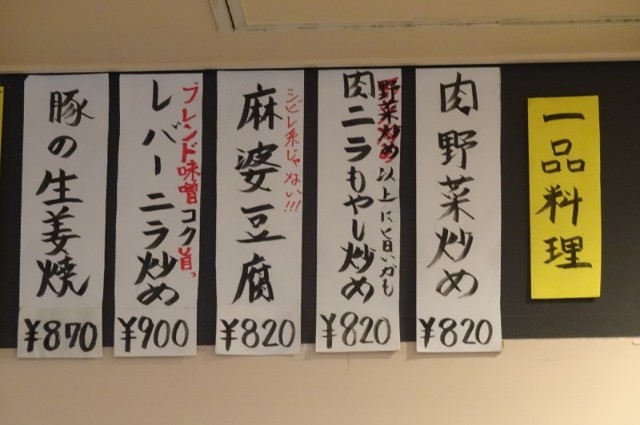 一品料理
肉野菜炒め
¥820
野菜炒め以上に旨いかも
肉ニラもやし炒め
¥820
シビレ系じゃない!!!
麻婆豆腐
¥820
ブレンド味噌コク旨っ
レバーニラ炒め
¥900
豚の生姜焼
¥870